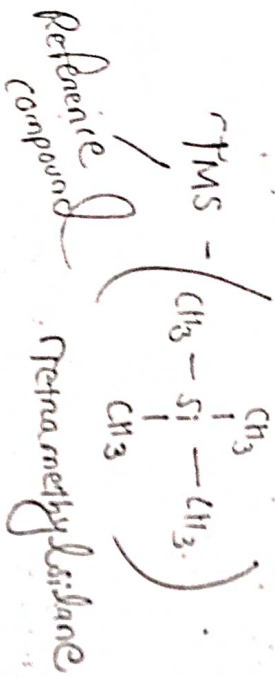 CH3
|
TMS - (CH3 — Si — CH3)
|
CH3
Reference
compound
Tetramethylsilane